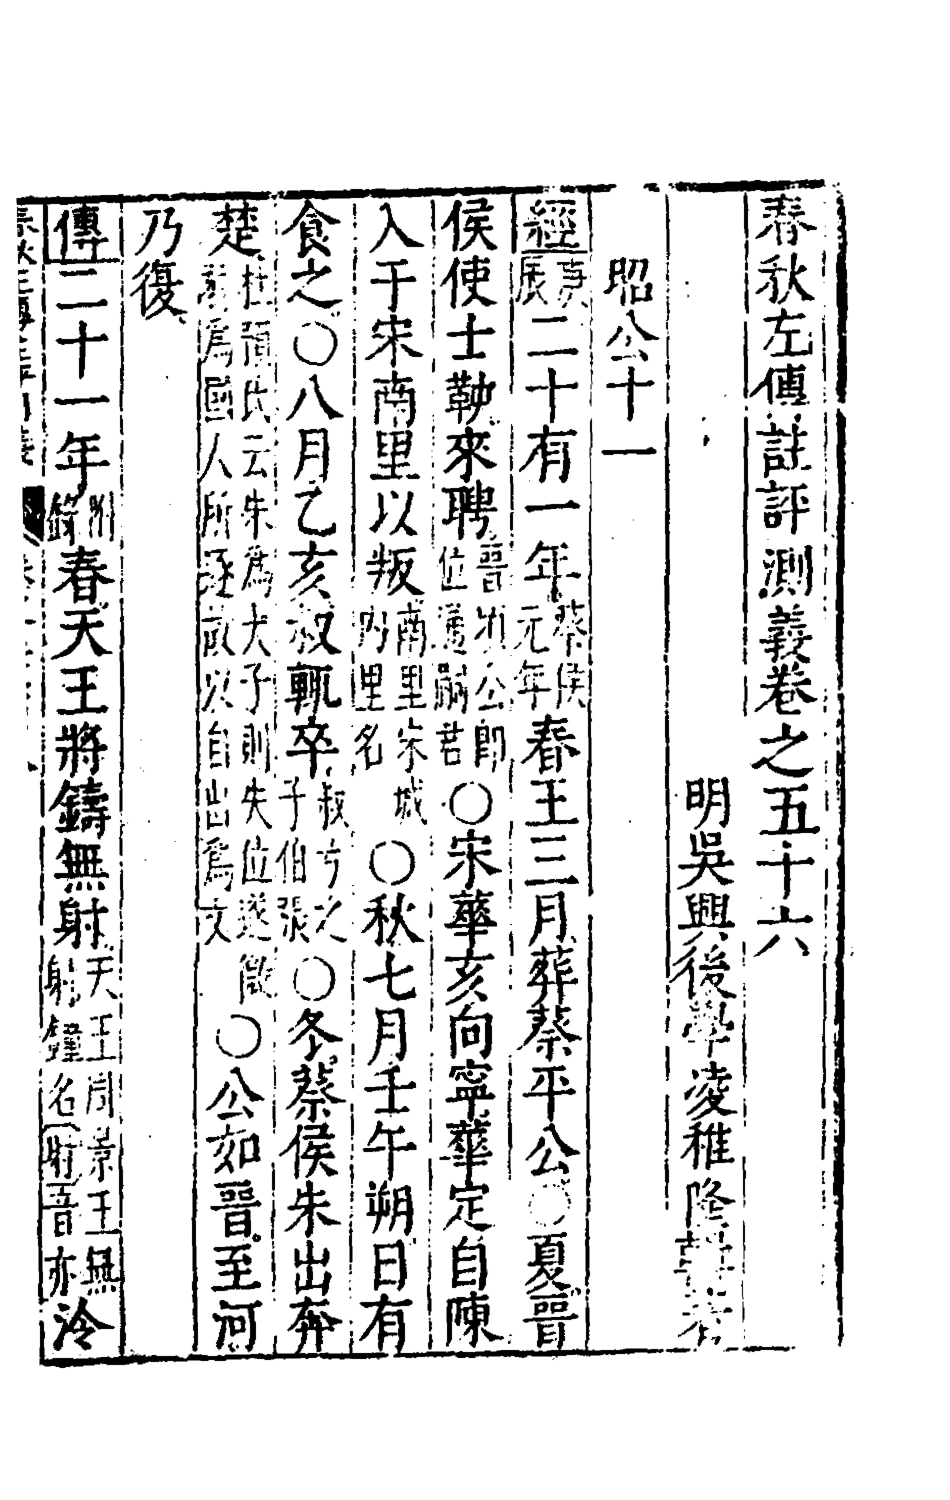 春秋左傳註評測義卷之五十六
明吳興後學凌稚隆輯著
昭公十一
經庚辰二十有一年蔡侯元年春王三月葬蔡平公○夏晉
侯使士鞅來聘晉頃公即位通嗣君○宋華亥向寧華定自陳
入于宋南里以叛南里宋城内里名○秋七月壬午朔日有
食之○八月乙亥叔輒卒叔弓之子伯張○冬蔡侯朱出奔
楚杜預氏云朱為大子則失位遂微弱為國人所逐故以自出為文○公如晉至河
乃復
傳二十一年附錄春天王將鑄無射天王周景王無射鐘名射音亦泠